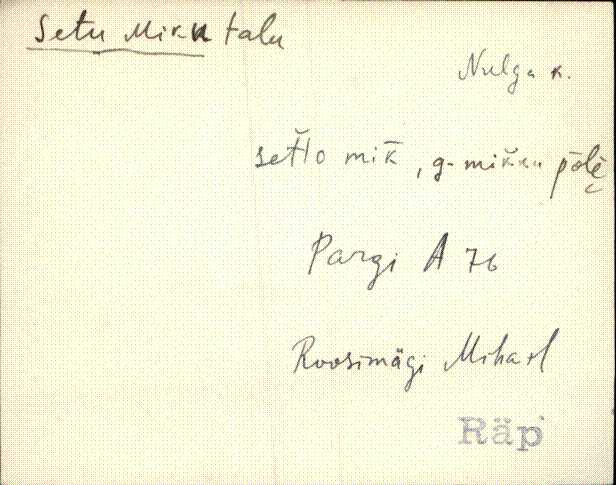 Setu Mikk talu
Nulga k.
setlo mik̄, g. mikku pōlȩ
Pargi A 76
Roosimägi Mihael
Räp